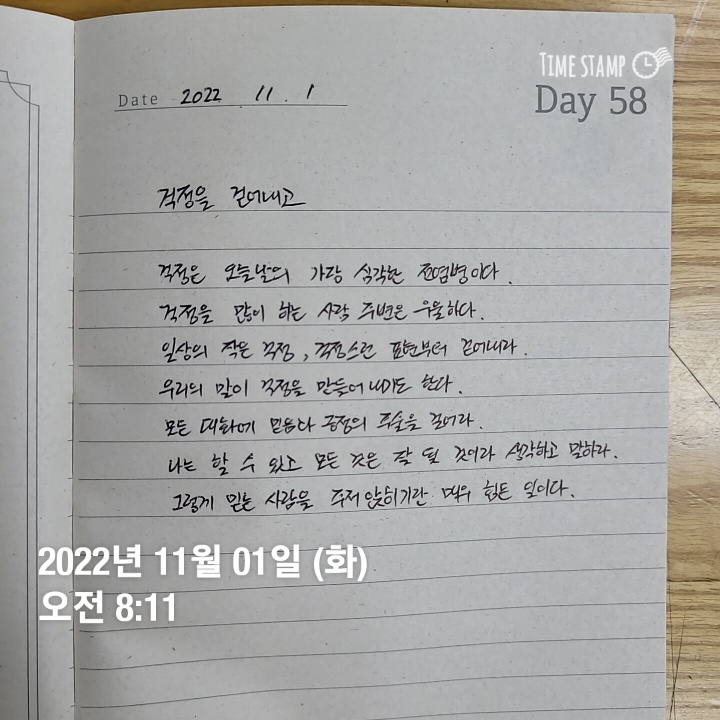 TIME STAMP
Day 58
Date 2022. 11. 1
걱정을 걷어내고
걱정은 오늘날의 가장 심각한 전염병이다.
걱정을 많이 하는 사람 주변은 우울하다.
일상의 작은 걱정, 걱정스런 표현부터 걷어내라.
우리의 말이 걱정을 만들어 내기도 한다.
모든 대화에 믿음과 긍정의 주술을 걸어라.
나는 할 수 있고 모든 것은 잘 될 것이라 생각하고 말하라.
그렇게 믿는 사람을 주저 앉히기란 매우 힘든 일이다.
2022년 11월 01일 (화)
오전 8:11